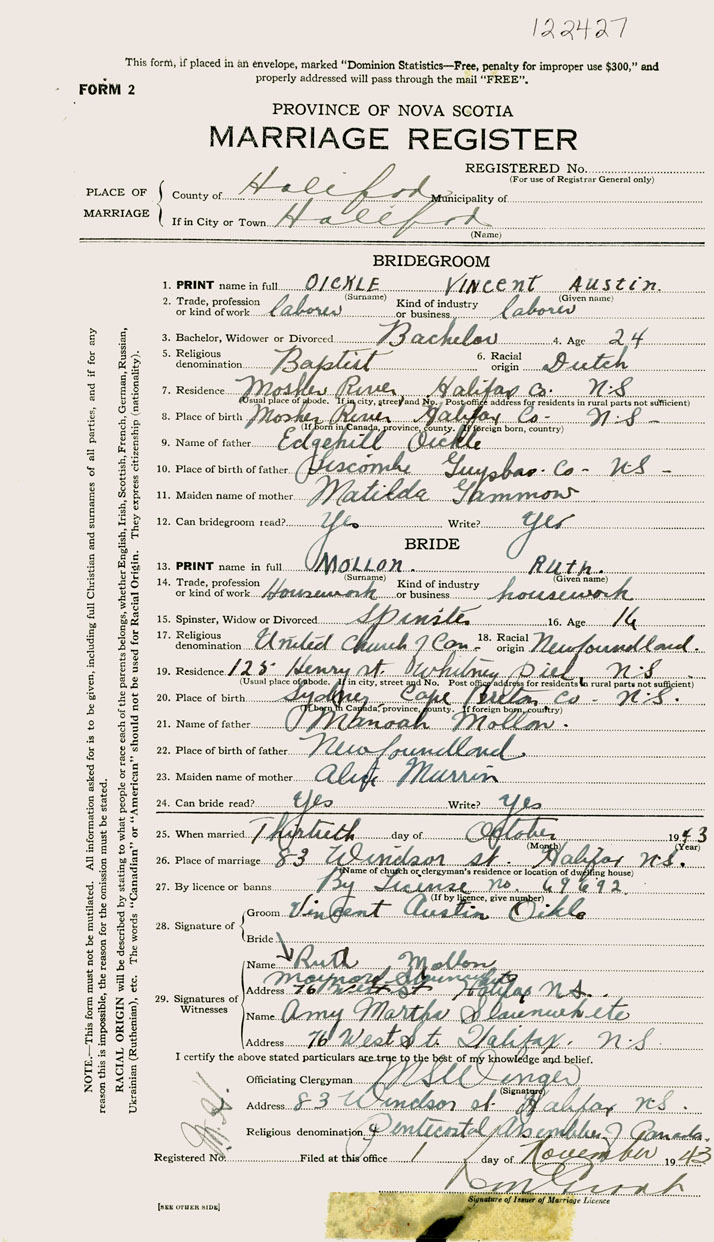 122427
This form, if placed in an envelope, marked "Dominion Statistics—Free, penalty for improper use $300," and
properly addressed will pass through the mail "FREE".
FORM 2
PROVINCE OF NOVA SCOTIA
MARRIAGE REGISTER
REGISTERED No.
(For use of Registrar General only)
PLACE OF MARRIAGE
County of Halifax Municipality of
If in City or Town Halifax
(Name)
BRIDEGROOM
1. PRINT name in full OICKLE VINCENT Austin.
(Surname) (Given name)
2. Trade, profession or kind of work laborer Kind of industry or business laborer
3. Bachelor, Widower or Divorced Bachelor 4. Age 24
5. Religious denomination Baptist 6. Racial origin Dutch
7. Residence Mosher River Halifax Co. N.S
(Usual place of abode. If in city, street and No. Post office address for residents in rural parts not sufficient)
8. Place of birth Mosher River Halifax Co- N.S-
(If born in Canada, province, county. If foreign born, country)
9. Name of father Edgehill Oickle
10. Place of birth of father Liscombe Guysboro. Co- N-S-
11. Maiden name of mother Matilda Gammon
12. Can bridegroom read? Yes Write? Yes
BRIDE
13. PRINT name in full MOLLON. RUTH.
(Surname) (Given name)
14. Trade, profession or kind of work Housework Kind of industry or business housework
15. Spinster, Widow or Divorced Spinster 16. Age 16
17. Religious denomination United Church of Can- 18. Racial origin Newfoundland.
19. Residence 125 Henry st Whitney Pier N.S
(Usual place of abode. If in city, street and No. Post office address for residents in rural parts not sufficient)
20. Place of birth Sydney Cape Breton Co- N.S.
(If born in Canada, province, county. If foreign born, country)
21. Name of father Manoah Mollon.
22. Place of birth of father Newfoundland
23. Maiden name of mother Murrin
24. Can bride read? Yes Write? Yes
25. When married Thirtieth day of October 1943
(Month) (Year)
26. Place of marriage 83 Windsor st. Halifax N.S.
(Name of church or clergyman's residence or location of dwelling house)
27. By licence or banns By License no. 69692
(If by licence, give number)
28. Signature of
Groom Vincent Austin Oikle
Bride
29. Signatures of Witnesses
Name Ruth Mollon
Maynard Slaunwhite
Address 76 West st Halifax N.S.
Name Amy Martha Slaunwhite
Address 76 West st. Halifax. N.S
I certify the above stated particulars are true to the best of my knowledge and belief.
Officiating Clergyman Winger
(Signature)
Address 83 Windsor st Halifax N.S.
Religious denomination Pentecostal Assemblies of Canada.
Registered No. Filed at this office 1 day of November 1943
Signature of Issuer of Marriage Licence
[SEE OTHER SIDE]
NOTE.—This form must not be mutilated. All information asked for is to be given, including full Christian and surnames of all parties, and if for any
reason this is impossible, the reason for the omission must be stated.
RACIAL ORIGIN will be described by stating to what people or race each of the parents belongs, whether English, Irish, Scottish, French, German, Russian,
Ukrainian (Ruthenian), etc. The words "Canadian" or "American" should not be used for Racial Origin. They express citizenship (nationality).